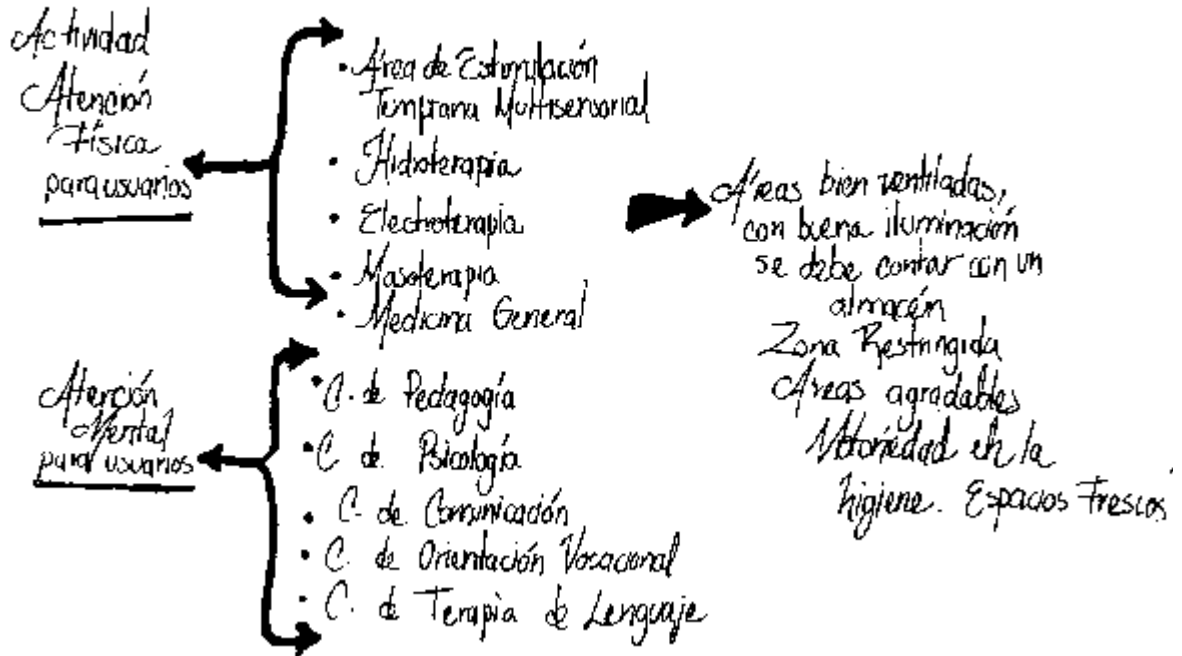 Actividad
Atención
Física
para usuarios
• Área de Estimulación
Temprana Multisensorial
• Hidroterapia
• Electroterapia
• Masoterapia
• Medicina General
Atención
Mental
para usuarios
• C. de Pedagogía
• C. de Psicología
• C. de Comunicación
• C. de Orientación Vocacional
• C. de Terapia de Lenguaje
Áreas bien ventiladas,
con buena iluminación
se debe contar con un
almacén
Zona Restringida
Áreas agradables
Notoriedad en la
higiene. Espacios Frescos